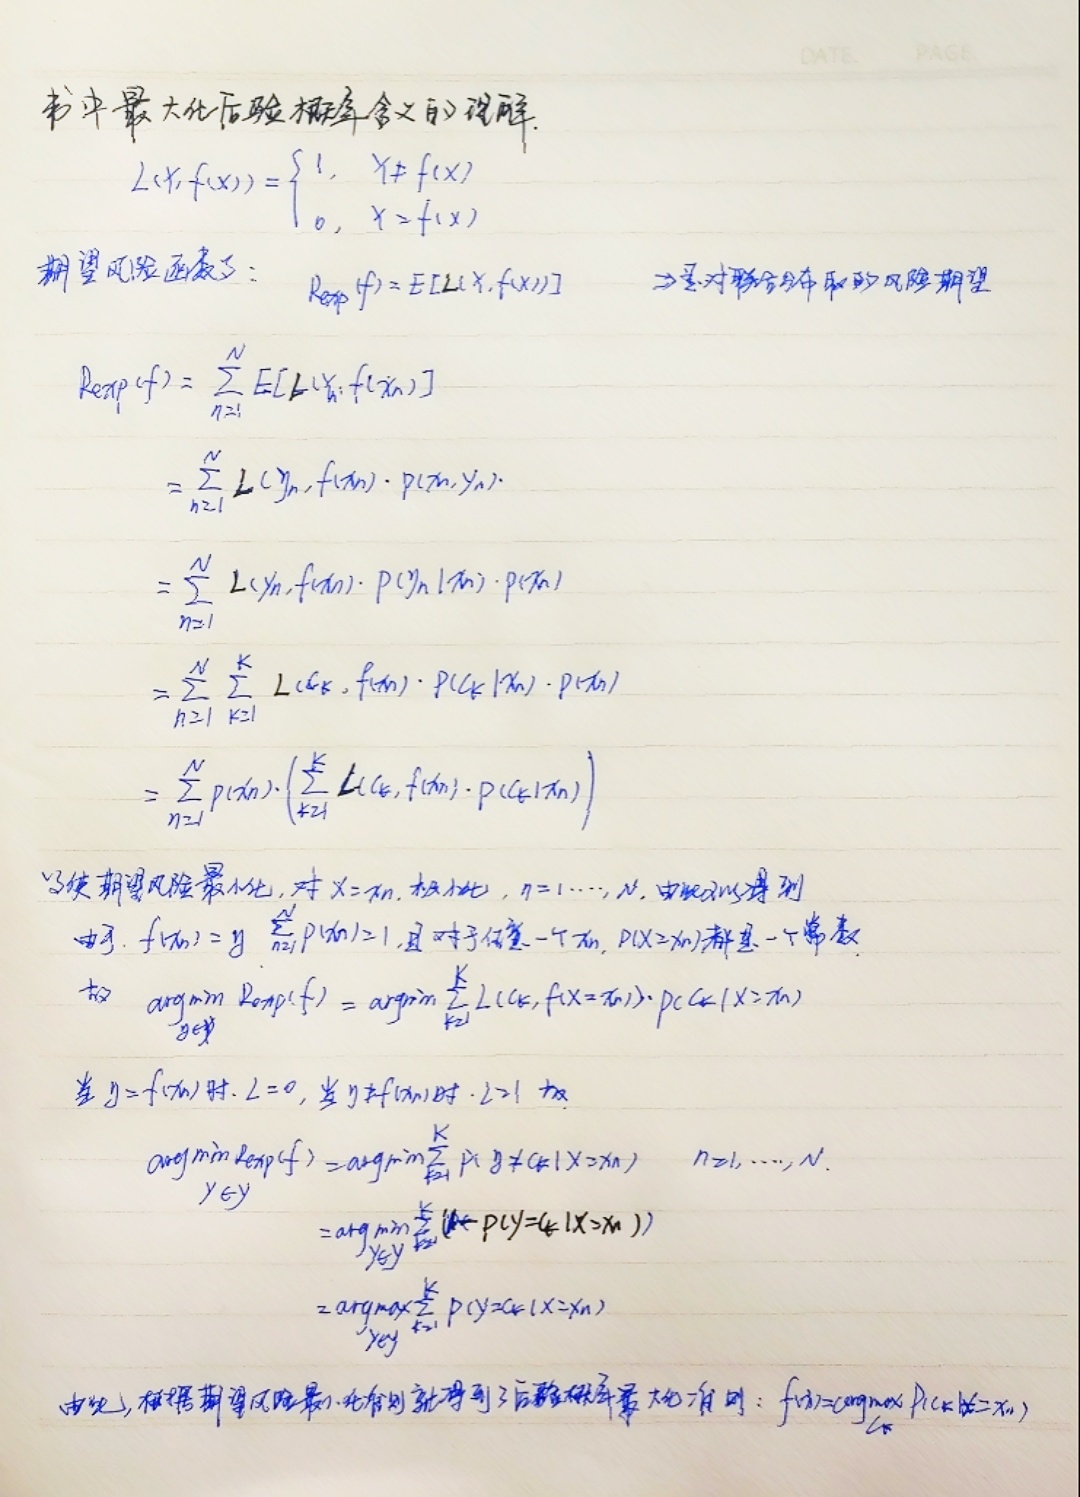 DATE. PAGE
书中最大化后验概率含义的理解.
L(Y,f(X)) = { 1, Y≠f(X)
0, Y=f(X)
期望风险函数为: Rexp(f) = E[L(Y,f(X))] ⇒是对联合分布取的风险期望
Rexp(f) = ∑_{n=1}^{N} E[L(Yn, f(xn)]
= ∑_{n=1}^{N} L(yn, f(xn)·p(xn,yn).
= ∑_{n=1}^{N} L(yn, f(xn)·P(yn|xn)·p(xn)
= ∑_{n=1}^{N} ∑_{k=1}^{K} L(ck, f(xn)·P(ck|xn)·p(xn)
= ∑_{n=1}^{N} p(xn)·(∑_{k=1}^{K} L(ck, f(xn)·p(ck|xn))
为使期望风险最小化,对X=xn.极小化, n=1·····,N. 由此可以得到
由于. f(xn)=y ∑_{n=1}^{N} P(xn)=1,且对于任意一个xn, P(X=xn)都是一个常数
故 argmin_{y∈y} Rexp(f) = argmin ∑_{k=1}^{K} L(ck, f(X=xn))·p(ck|X=xn)
当y=f(xn)时.L=0,当y≠f(xn)时.L=1 故
argmin_{y∈y} Rexp(f) = argmin ∑_{k=1}^{K} P(y≠ck|X=xn) n=1,·····,N.
= argmin_{y∈y} ∑_{k=1}^{K} (1-P(y=ck|X=xn))
= argmax_{y∈y} ∑_{k=1}^{K} P(y=ck|X=xn)
由此,根据期望风险最小化准则就得到了后验概率最大化准则: f(x)=argmax_{ck} P(ck|X=xn)